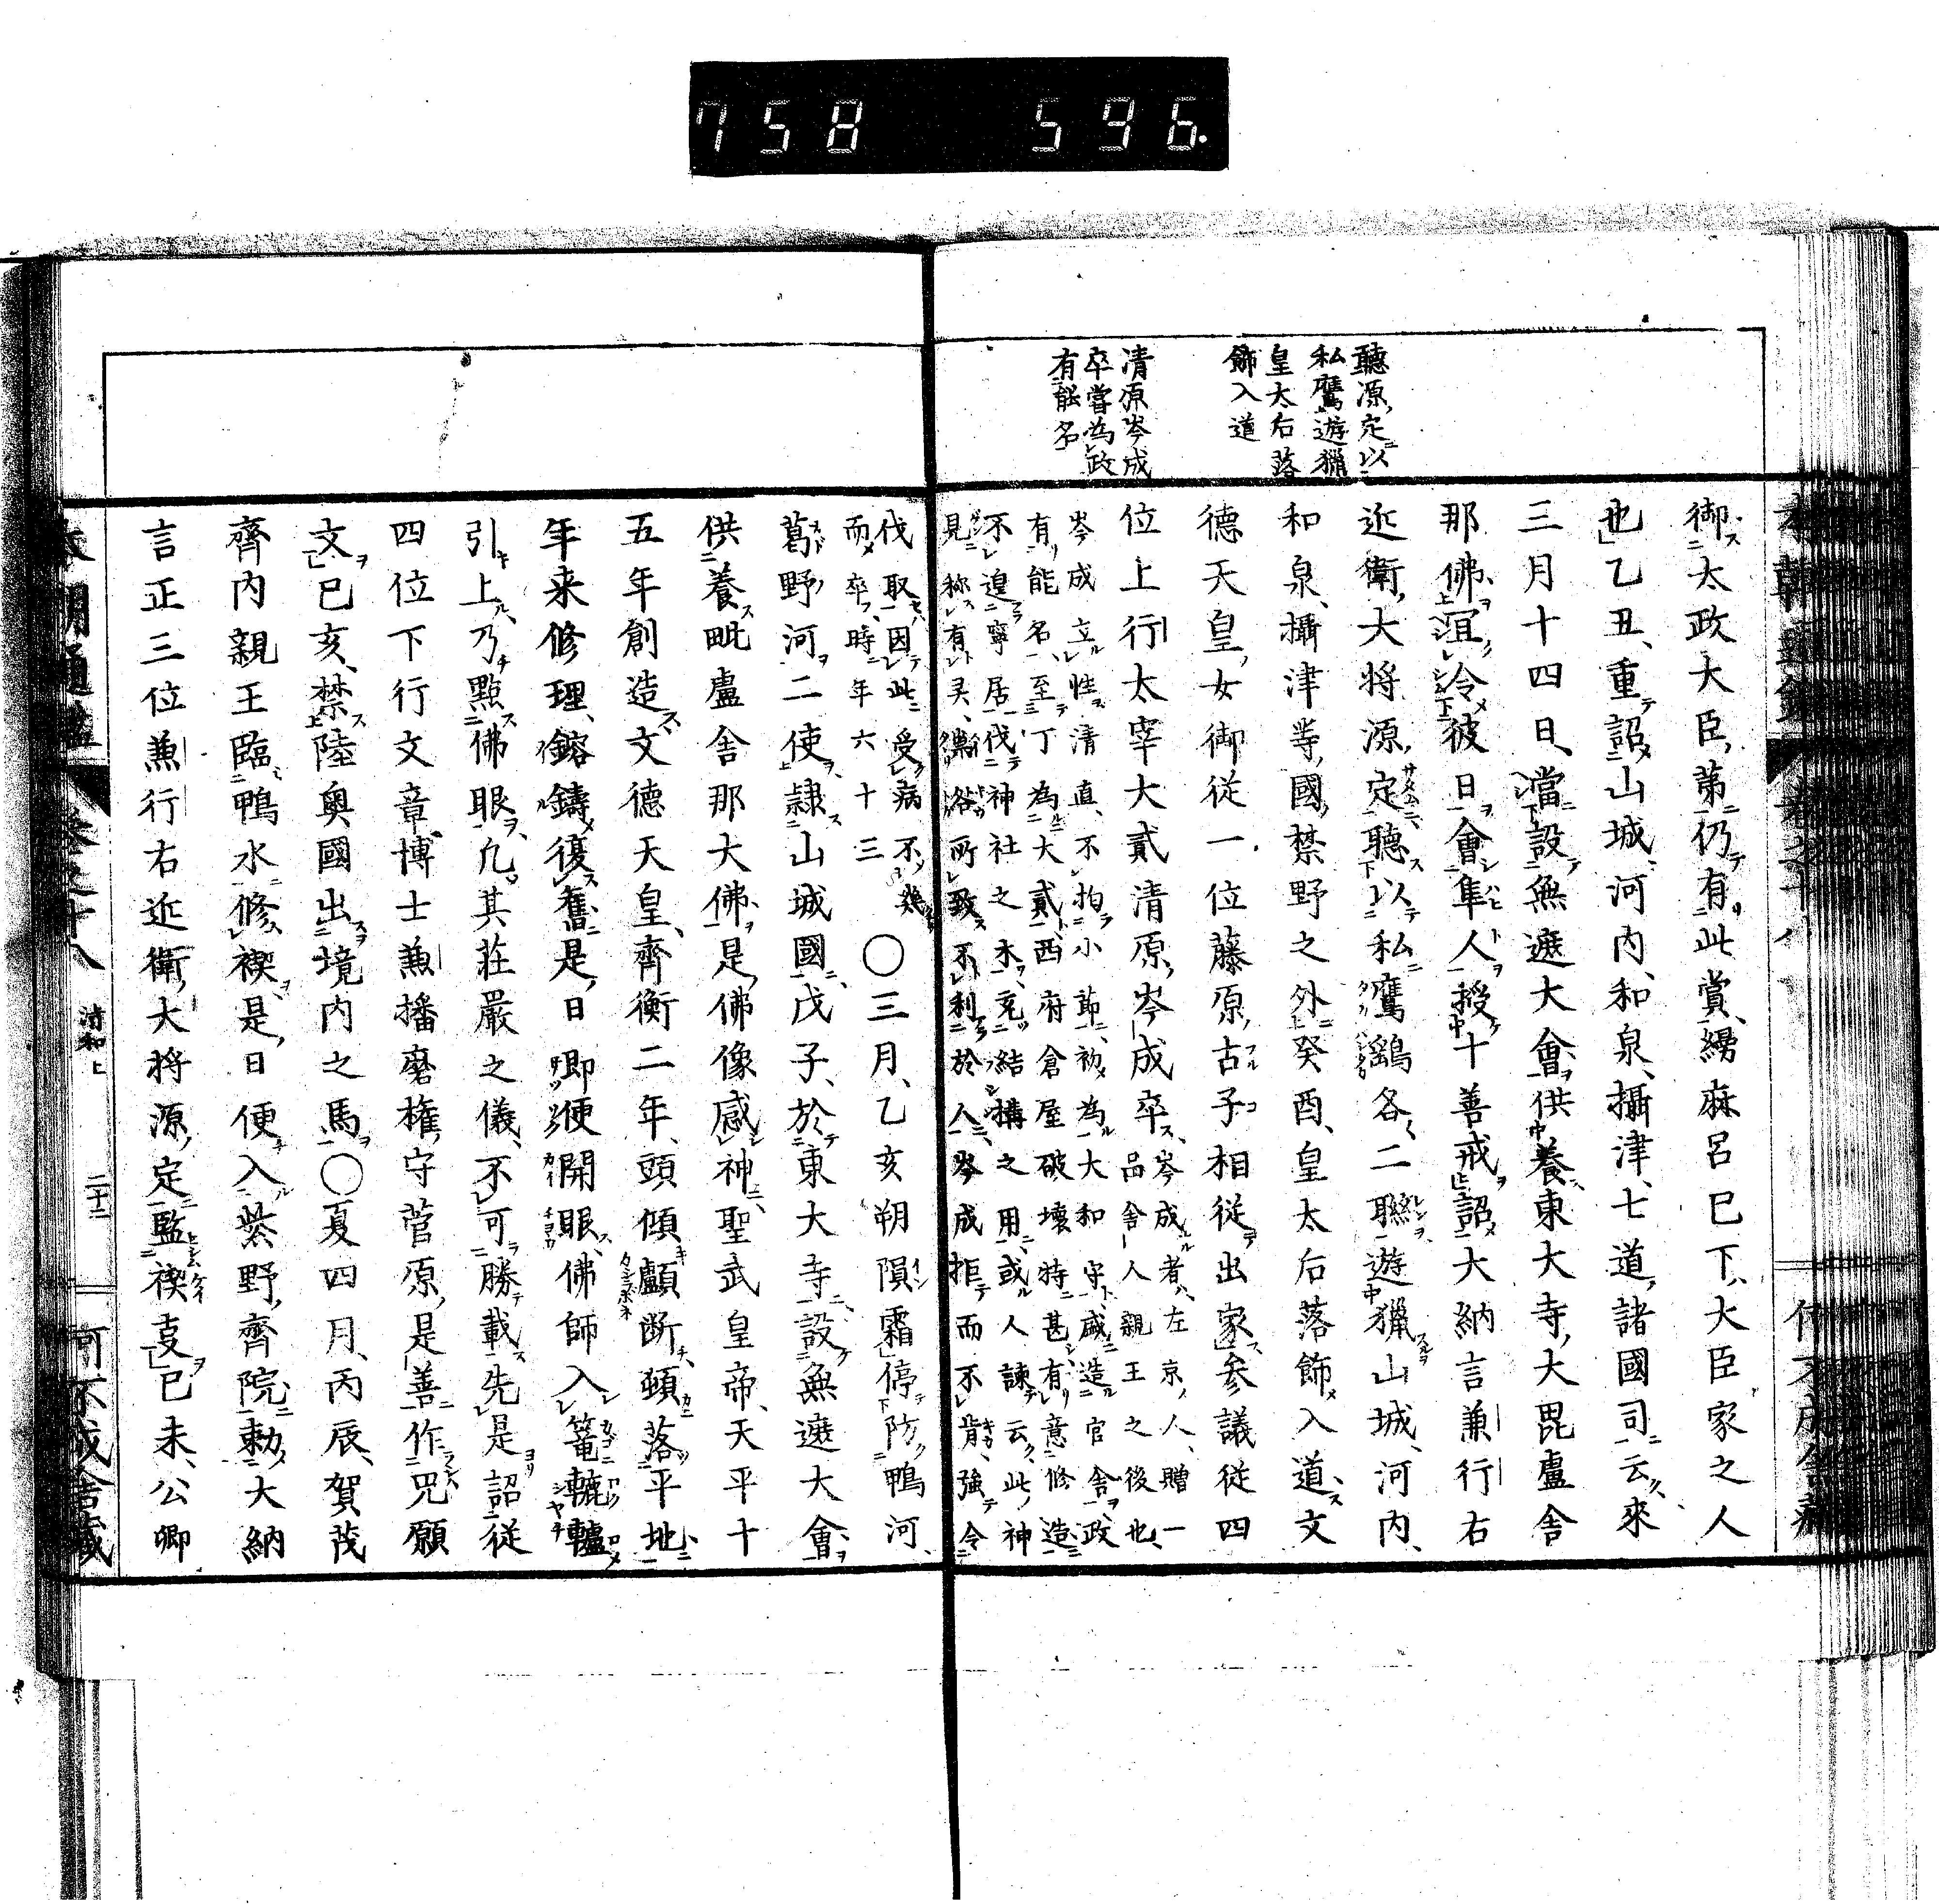 758 596.
聽源定以
私鷹遊獵
皇太后落
飾入道
清原岑成
卒嘗為政
有能名
御太政大臣第仍有此賞繆麻呂已下大臣家之人
也乙丑重詔山城河内和泉攝津七道諸國司云來
三月十四日當設無遮大會供養東大寺大毘盧舍
那佛冝令彼日會隼人授十善戒詔大納言兼行右
近衛大将源定聽以私鷹鷂各二聯遊獵山城河内
和泉攝津等國禁野之外癸酉皇太后落飾入道文
德天皇女御従一位藤原古子相従出家参議従四
位上行太宰大貳清原岑成卒岑成者左京人贈一
品舍人親王之後也
岑成立性清直不拘小節初為大和守盛造官舍政
有能名至丁為大貳西府倉屋破壊特甚有意修造
不遑寧居伐神社之木充結構之用或人諫云此神
見称有灵禍咎所致不利於人岑成拒而不肯強令
伐取因此受病不幾
而卒時年六十三
○三月乙亥朔隕霜停防鴨河
葛野河二使隷山城國戊子於東大寺設無遮大會
供養毗盧舍那大佛是佛像感神聖武皇帝天平十
五年創造文德天皇齊衡二年頭傾顱断頚落平地
年来修理鎔鑄復舊是日即便開眼佛師入篭轆轤
引上乃點佛眼凢其莊嚴之儀不可勝載先是詔従
四位下行文章博士兼播磨權守菅原是善作咒願
文已亥禁陸奥國出境内之馬○夏四月丙辰賀茂
齊内親王臨鴨水修禊是日便入紫野齊院勅大納
言正三位兼行右近衛大将源定監禊㕝已未公卿
本朝通鑑 卷之十八 清和上 二十二